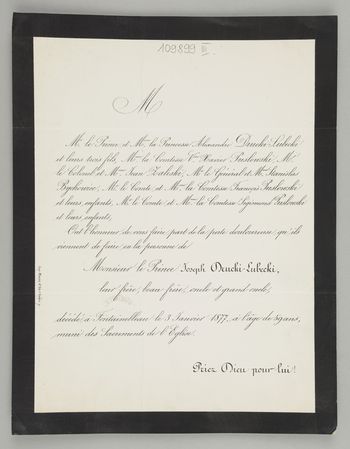 109899 III
M
Mr le Prince et Mme la Princesse Alexandre Drucki-Lubecki
et leurs trois fils, Mme la Comtesse Vve Xavier Puslowski, Mr
le Colonel et Mme Jean Zaleski, Mr le Général et Mme Stanislas
Bychowiec, Mr le Comte et Mme la Comtesse François Puslowski
et leurs enfants, Mr le Comte et Mme la Comtesse Sigismond Puslowski
et leurs enfants,
Ont l'honneur de vous faire part de la perte douloureuse qu'ils
viennent de faire en la personne de
Monsieur le Prince Joseph Drucki-Lubecki,
leur frère, beau-frère, oncle et grand oncle,
décédé à Fontainebleau le 3 Janvier 1877, à l'âge de 89 ans,
muni des Sacrements de l'Eglise.
Priez Dieu pour lui!